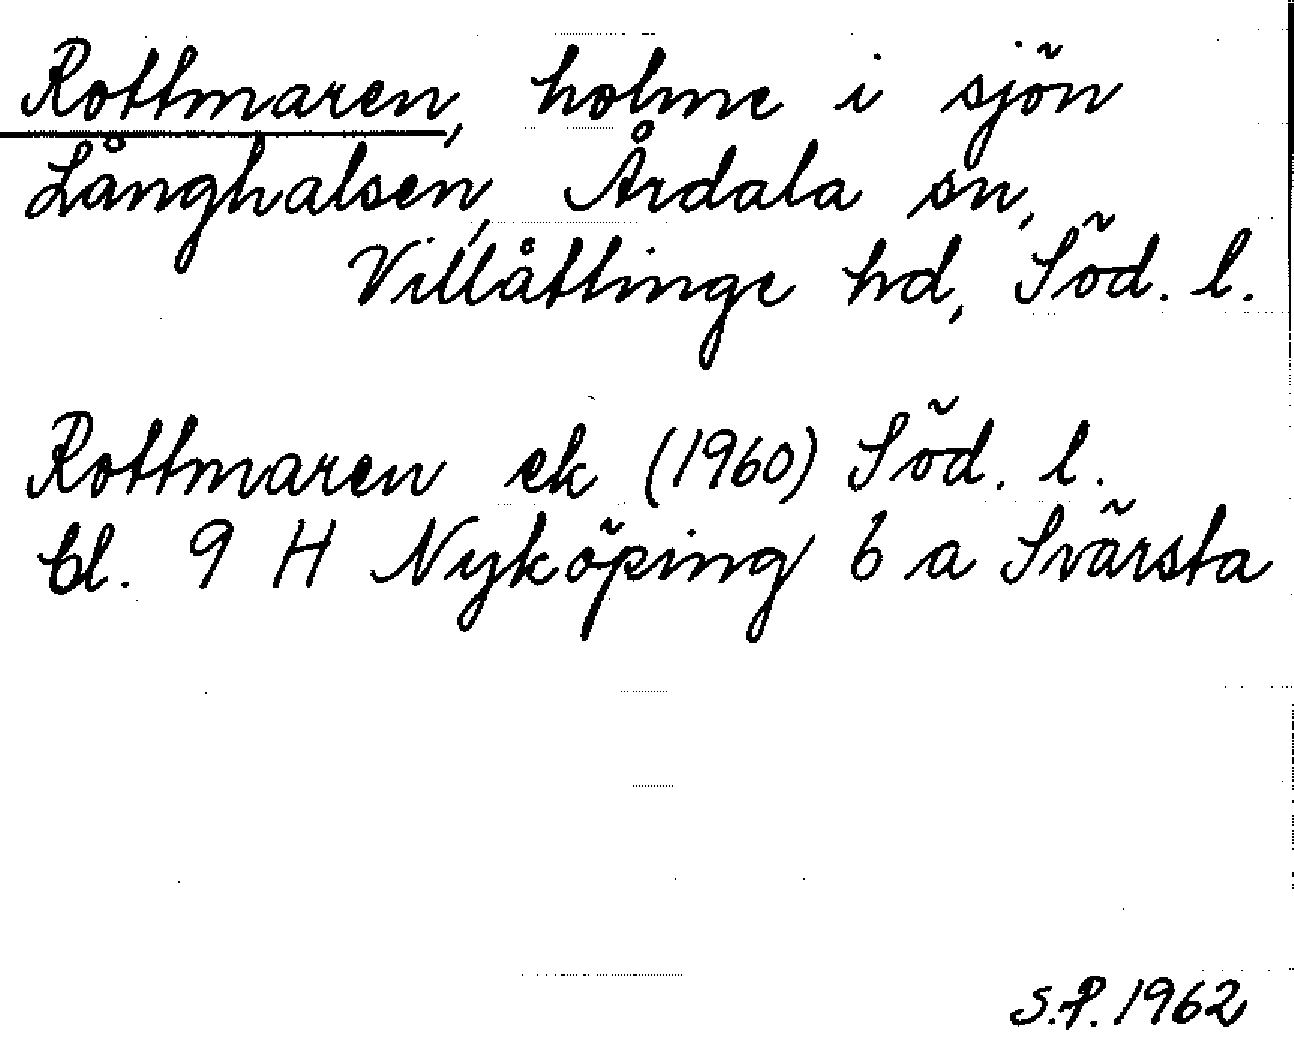 Rottmaren, holme i sjön
Långhalsen, Årdala sn,
Villåttinge hd, Söd. l.
Rottmaren ek (1960) Söd. l.
bl. 9 H Nyköping 6 a Svärsta
S.P. 1962